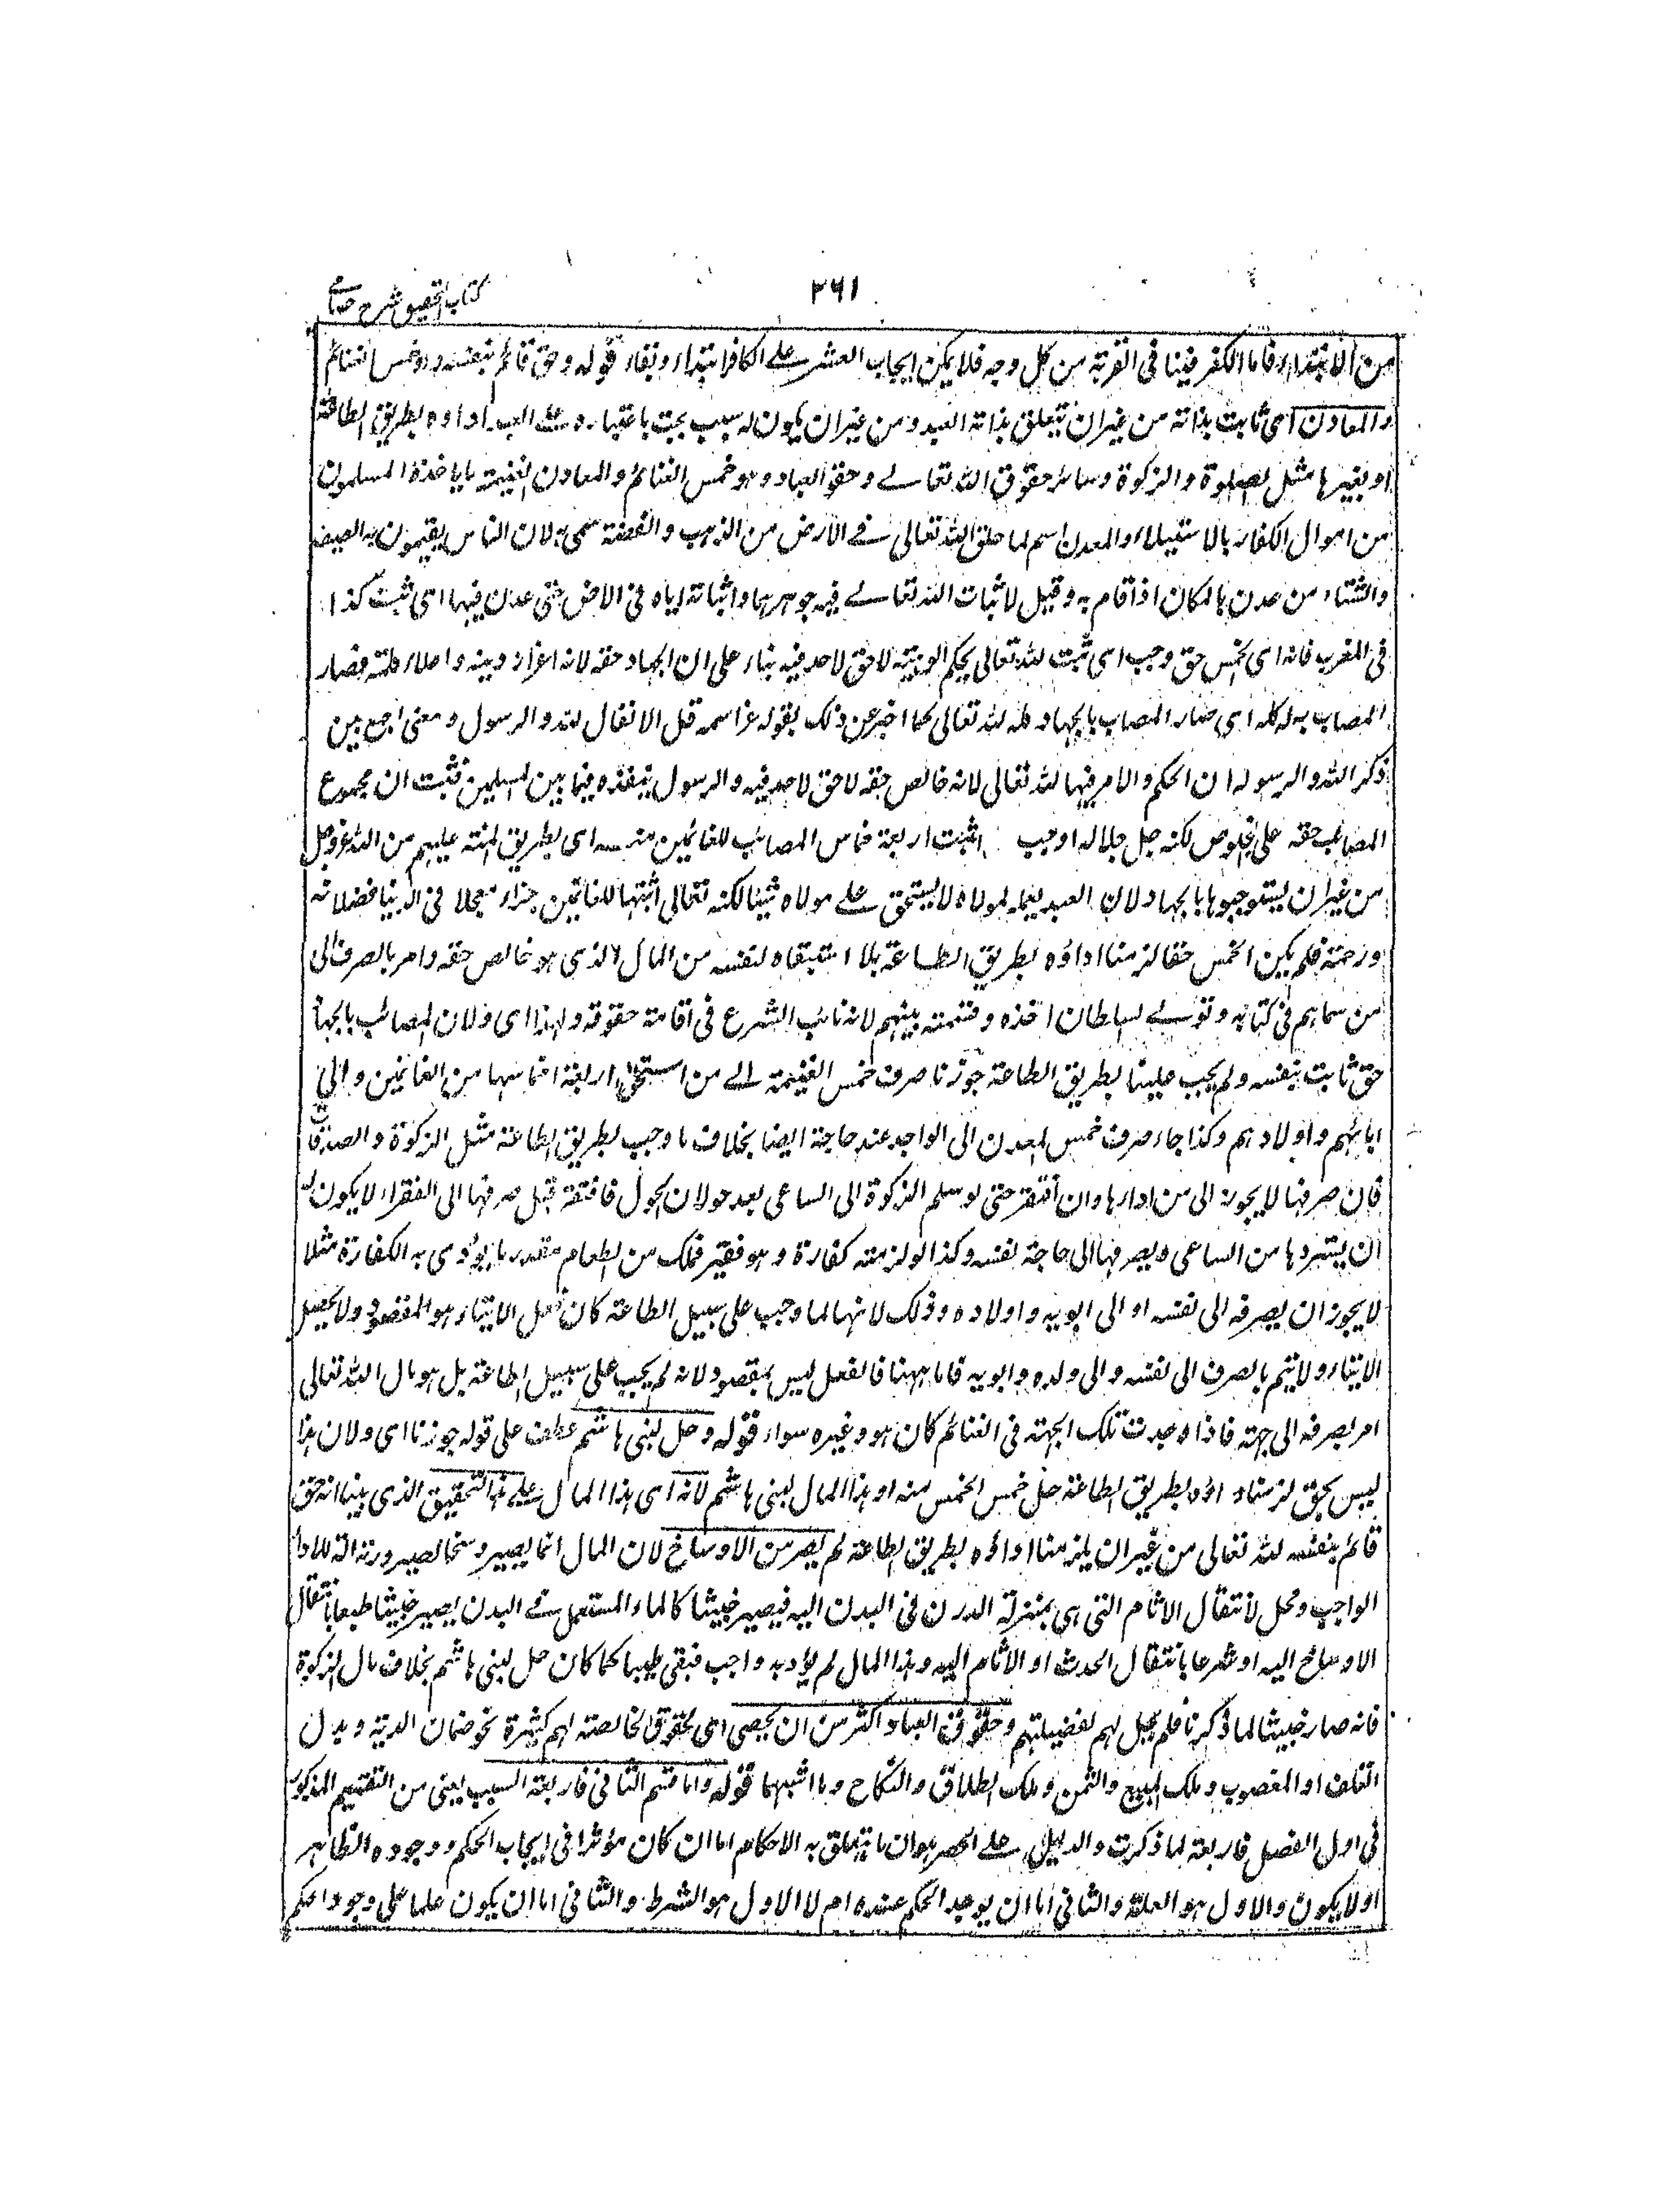 ۲۶۱
كتاب التحقيق شرح حسامی
من الابتداء فاما الكفر فينافى القربة من كل وجه فلا يمكن ايجاب العشر على الكافر ابتداء وبقاء قوله وحق قائم بنفسه وهو خمس الغنائم
والمعادن اى ثابت بذاته من غير ان يتعلق بذاته العبد ومن غير ان يكون له سبب يجب باعتباره على العبد اداؤه بطريق الطاعة
او بغيرها مثل الصلوة والزكوة وسائر حقوق الله تعالى وحقوق العباد وهو خمس الغنائم والمعادن الغنيمة ما ياخذه المسلمون
من اموال الكفار بالاستيلاء والمعدن اسم لما خلق الله تعالى فى الارض من الذهب والفضة سمى به لان الناس يقيمون به الصيف
والشتاء من عدن بالمكان اذا قام به وقيل لاثبات الله تعالى فيه جوهرهما واثباته اياه فى الارض حتى عدن فيها اى ثبت كذا
فى المغرب فانه اى الخمس حق وجب اى ثبت لله تعالى بحكم الوهيته لا حق لاحد فيه بناء على ان الجهاد حقه لانه اعزاز دينه واعلاء كلمته فصار
المصاب به له كله اى صار المصاب بالجهاد كله لله تعالى كما اخبر عن ذلك بقوله عز اسمه قل الانفال لله والرسول ومعنى الجمع بين
ذكر الله والرسول ان الحكم والامر فيها لله تعالى لانه خالص حقه لا حق لاحد فيه والرسول ينفذه فيما بين المسلمين فثبت ان مجموع
المصاب حقه على الخلوص لكنه جل جلاله اوجب اثبت اربعة اخماس المصاب للغانمين منه اى بطريق المنة عليهم من الله عز وجل
من غير ان يستوجبوها بالجهاد لان العبد يعمله لمولاه لا يستحق على مولاه شيئا لكنه تعالى اثبتها للغانمين جزاء معجلا فى الدنيا فضلا منه
ورحمة فلم يكن الخمس حقا لزمنا اداؤه بطريق الطاعة بلا استبقاه لنفسه من المال الذى هو خالص حقه وامر بالصرف الى
من سماهم فى كتابه وتولى السلطان اخذه وقسمته بينهم لانه نائب الشرع فى اقامة حقوقه ولهذا اى ولان المصاب بالجهاد
حق ثابت بنفسه ولم يجب علينا بطريق الطاعة جوزنا صرف خمس الغنيمة الى من استحق اربعة اخماسها من الغانمين والى
ابائهم واولادهم وكذا جاء صرف خمس المعدن الى الواجد عند حاجة ايضا بخلاف ما وجب بطريق الطاعة مثل الزكوة والصدقات
فان صرفها لا يجوز الى من اداها وان افتقر حتى لو سلم الزكوة الى الساعى بعد حولان الحول فافتقر قبل صرفها الى الفقراء لا يكون له
ان يستردها من الساعى ويصرفها الى حاجة نفسه وكذا لو لزمته كفارة وهو فقير فملك من الطعام مقدار ما يؤدى به الكفارة مثلا
لا يجوز ان يصرفه الى نفسه او الى ابويه واولاده وذلك لانها لما وجب على سبيل الطاعة كان فعل الايتاء هو المقصود ولا يحصل
الايتاء ولا يتم بالصرف الى نفسه والى ولده وابويه فاما ههنا فالفعل ليس بمقصود لانه لم يجب على سبيل الطاعة بل هو مال الله تعالى
امر بصرفه الى جهة فاذا وجدت تلك الجهة فى الغنائم كان هو وغيره سواء قوله وحل لبنى هاشم عطف على قوله جوزنا اى ولان هذا
ليس بحق لزمنا اداؤه بطريق الطاعة حل خمس الخمس منه او هذا المال لبنى هاشم لانه اى هذا المال على هذا التحقيق الذى بينا انه حق
قائم بنفسه لله تعالى من غير ان يلزمنا اداؤه بطريق الطاعة لم يصر من الاوساخ لان المال انما يصير وسخا لصيرورته الة للاداء
الواجب ومحل لانتقال الاثام التى هى بمنزلة الدرن فى البدن اليه فيصير خبيثا كالماء المستعمل فى البدن يصير خبيثا طبعا بانتقال
الاوساخ اليه او شرعا بانتقال الحدث او الاثام اليه وهذا المال لم يؤد به واجب فبقى طيبا كما كان حل لبنى هاشم بخلاف مال الزكوة
فانه صار خبيثا لما ذكرنا فلم يحل لهم لفضيلتهم وحقوق العباد اكثر من ان يحصى اى الحقوق الخالصة لهم كثيرة نحو ضمان الدية وبدل
التلف او المغصوب وملك المبيع والثمن وملك الطلاق والنكاح وما اشبهها قوله واما القسم الثانى فاربعة السبب يعنى من التقسيم المذكور
فى اول الفصل فاربعة لما ذكرت والدليل على الحصر هو ان ما يتعلق به الاحكام اما ان كان مؤثرا فى ايجاب الحكم ووجوده الظاهر
او لا يكون والاول هو العلة والثانى اما ان يوجد الحكم عنده ام لا الاول هو الشرط والثانى اما ان يكون علما على وجود الحكم